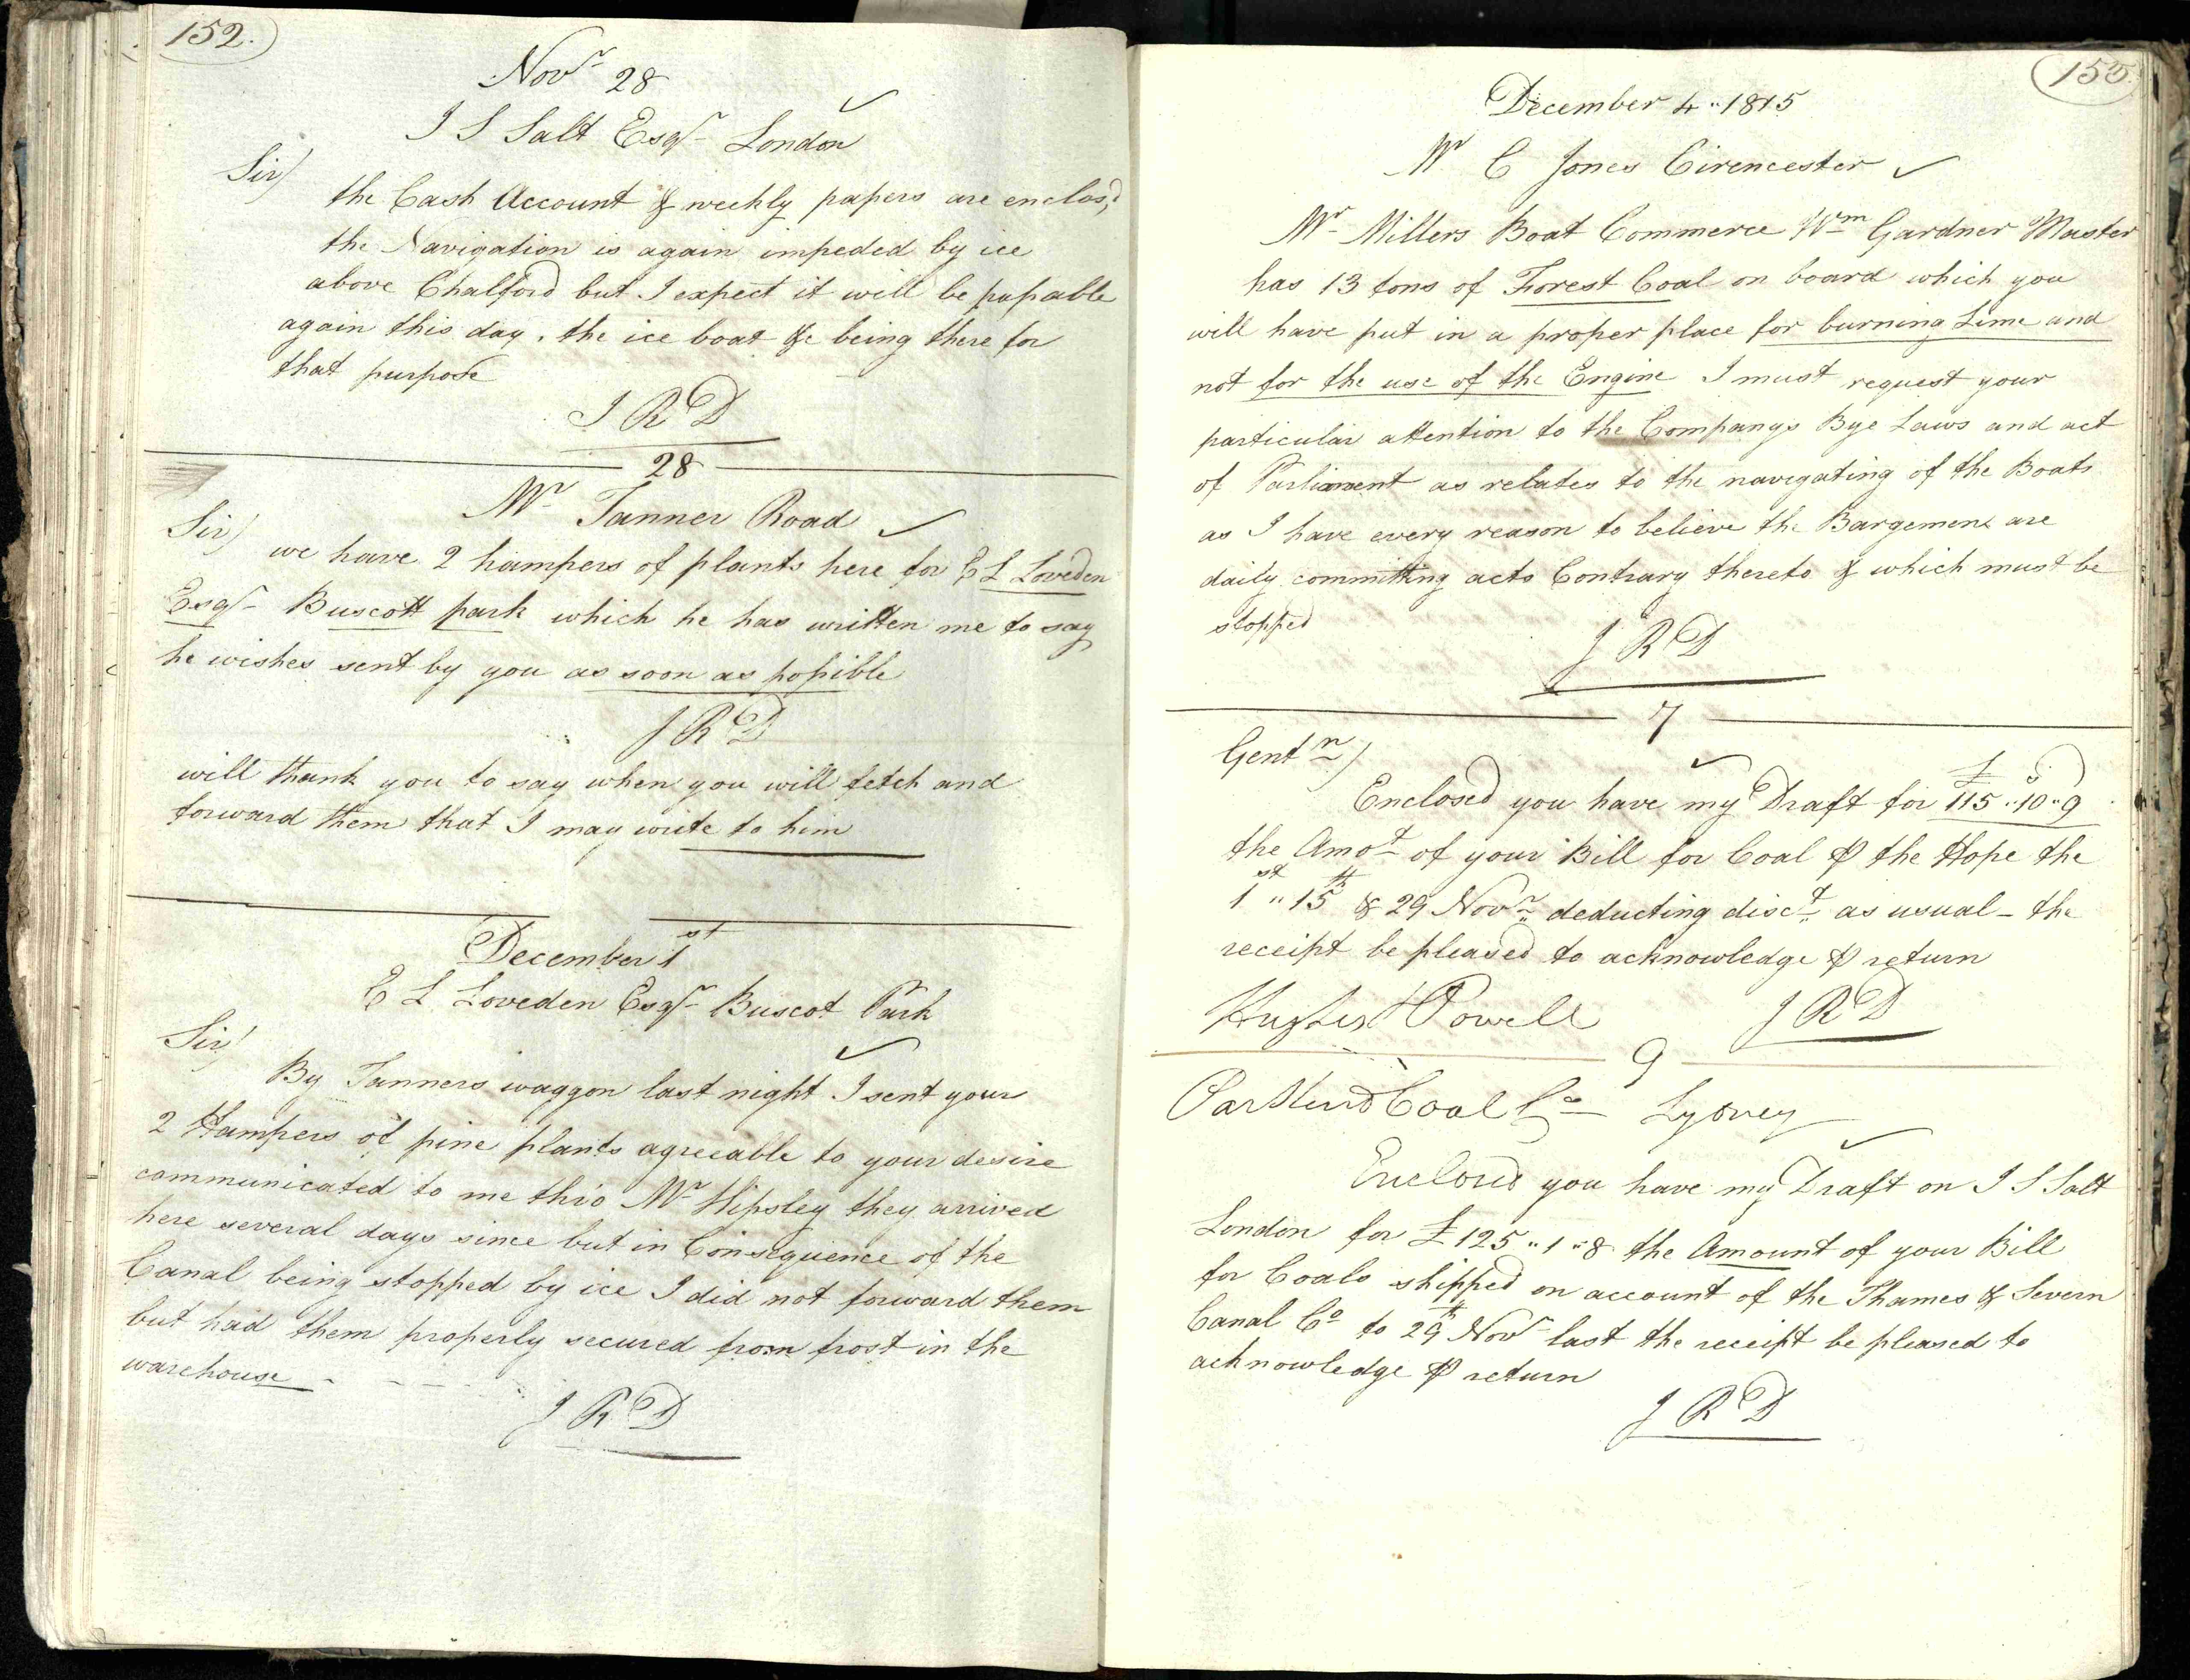 152.
Novr 28
I S Salt Esqr London
Sir/
the Cash Account & weekly papers are enclos,d
the Navigation is again impeded by ice
above Chalford but I expect it will be passable
again this day, the ice boat &c being there for
that purpose
J R D
28
Mr Tanner Road
Sir/
we have 2 hampers of plants here for E L Loveden
Esqr Buscott park which he has written me to say
he wishes sent by you as soon as possible
J R D
will thank you to say when you will fetch and
forward them that I may write to him
December 1st
E L Loveden Esqr Buscot Park
Sir/
By Tanners waggon last night I sent your
2 Hampers of pine plants agreeable to your desire
communicated to me thro Mr Hipsley they arrived
here several days since but in Consequence of the
Canal being stopped by ice I did not forward them
but had them properly secured from frost in the
warehouse
J R D
153.
December 4 " 1815
Mr C Jones Cirencester
Mr Millers Boat Commerce Wm Gardner Master
has 13 tons of Forest Coal on board which you
will have put in a proper place for burning Lime and
not for the use of the Engine I must request your
particular attention to the Companys Bye Laws and act
of Parliament as relates to the navigating of the Boats
as I have every reason to believe the Bargemens are
daily committing acts Contrary thereto & which must be
stopped
J R D
7
Gentn/
Enclosed you have my Draft for £115 " 10s " 9d
the Amot of your Bill for Coal ⅌ the Hope the
1st " 15th & 29 Novr deducting disct as usual – the
receipt be pleased to acknowledge ⅌ return
Hughes & Powell J R D
9
Parkend Coal Co Lydney
Enclosed you have my Draft on I S Salt
London for £125 " 1 " 8 the Amount of your Bill
for Coals shipped on account of the Thames & Severn
Canal Co to 29th Novr last the receipt be pleased to
acknowledge ⅌ return
J R D